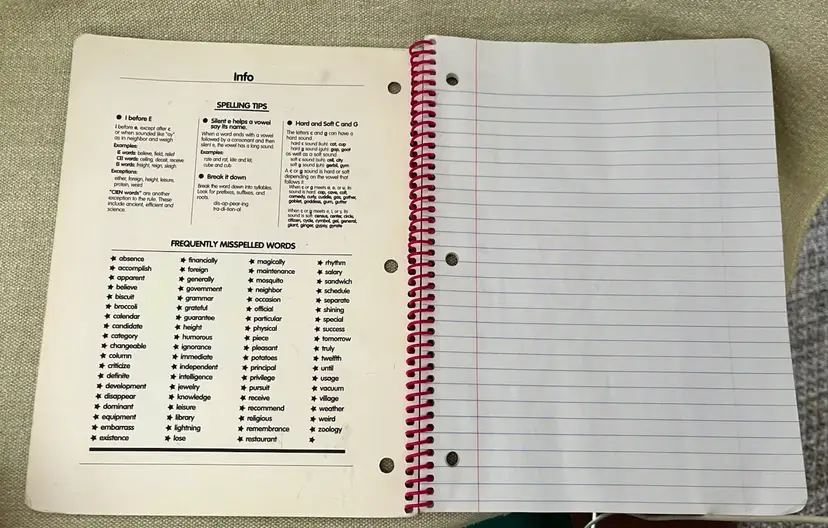 Info
SPELLING TIPS
● I before E
I before e, except after c
or when sounded like "ay"
as in neighbor and weigh
Examples:
IE words: believe, field, relief
CEI words: ceiling, deceit, receive
EI words: freight, reign, sleigh
Exceptions:
either, foreign, height, leisure,
protein, weird
"CIEN words" are another
exception to the rule. These
include ancient, efficient and
science.
● Silent e helps a vowel
say its name.
When a word ends with a vowel
followed by a consonant and then
silent e, the vowel has a long sound.
Examples:
rate and rat, kite and kit,
cube and cub
● Break it down
Break the word down into syllables.
Look for prefixes, suffixes, and
roots.
dis-ap-pear-ing
tra-di-tion-al
● Hard and Soft C and G
The letters c and g can have a
hard sound
hard c sound (kuh): cat, cup
hard g sound (guh): gap, goat
as well as a soft sound
soft c sound (suh): cell, city
soft g sound (juh): gerbil, gym
A c or g sound is hard or soft
depending on the vowel that
follows it.
When c or g meets a, o, or u, its
sound is hard: cap, cave, colt,
comedy, curly, cuddle, gas, gather,
goblet, goddess, gum, gutter
When c or g meets e, i, or y, its
sound is soft: census, center, circle,
citizen, cycle, cymbal, gel, general,
giant, ginger, gypsy, gyrate
FREQUENTLY MISSPELLED WORDS
★ absence
★ accomplish
★ apparent
★ believe
★ biscuit
★ broccoli
★ calendar
★ candidate
★ category
★ changeable
★ column
★ criticize
★ definite
★ development
★ disappear
★ dominant
★ equipment
★ embarrass
★ existence
★ financially
★ foreign
★ generally
★ government
★ grammar
★ grateful
★ guarantee
★ height
★ humorous
★ ignorance
★ immediate
★ independent
★ intelligence
★ jewelry
★ knowledge
★ leisure
★ library
★ lightning
★ lose
★ magically
★ maintenance
★ mosquito
★ neighbor
★ occasion
★ official
★ particular
★ physical
★ piece
★ pleasant
★ potatoes
★ principal
★ privilege
★ pursuit
★ receive
★ recommend
★ religious
★ remembrance
★ restaurant
★ rhythm
★ salary
★ sandwich
★ schedule
★ separate
★ shining
★ special
★ success
★ tomorrow
★ truly
★ twelfth
★ until
★ usage
★ vacuum
★ village
★ weather
★ weird
★ zoology
★